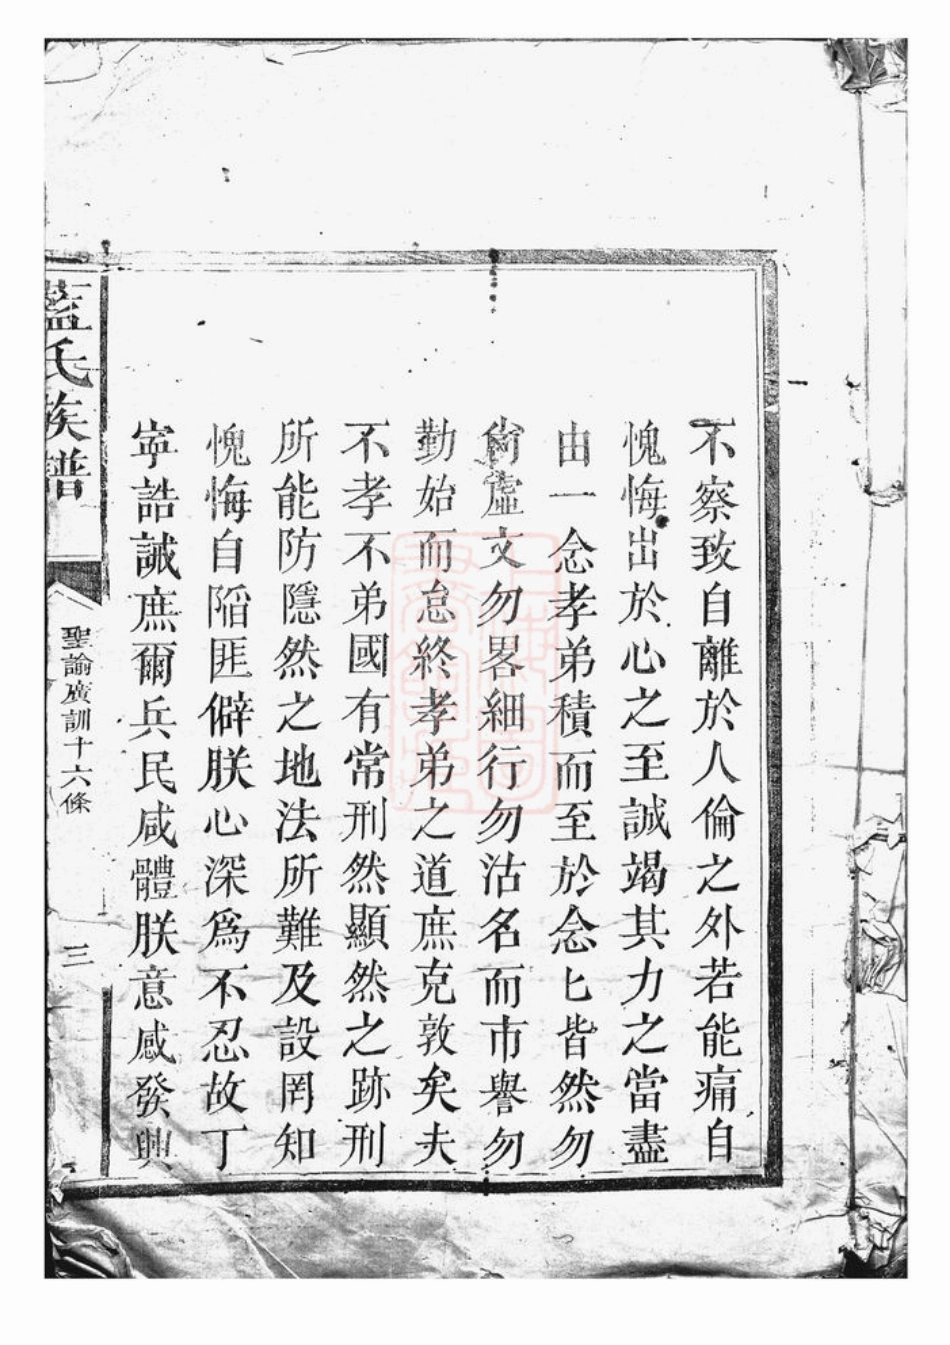 不察致自離於人倫之外若能痛自
愧悔出於心之至誠竭其力之當盡
由一念孝弟積而至於念匕皆然勿
尙虛文勿畧細行勿沽名而市譽勿
勤始而怠終孝弟之道庶克敦矣夫
不孝不弟國有常刑然顯然之跡刑
所能防隱然之地法所難及設罔知
愧悔自陷匪僻朕心深爲不忍故丁
寜誥誡庶爾兵民咸體朕意感發興
藍氏族譜
聖諭廣訓十六條
三